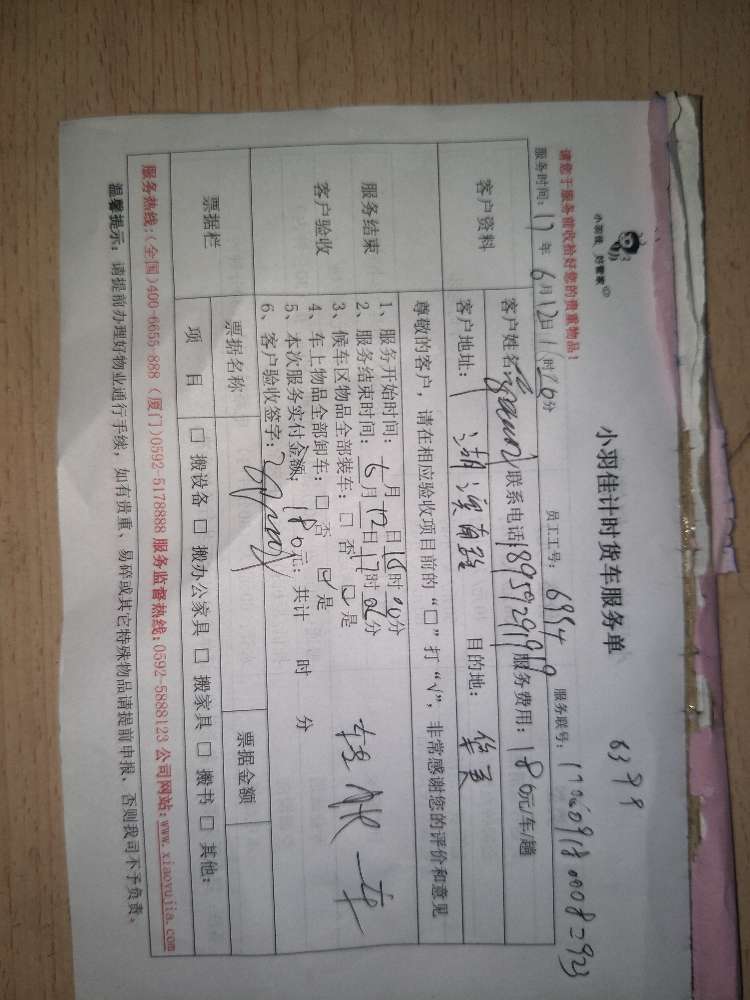 小羽佳 好管家
小羽佳计时货车服务单
6399
请您于服务前收拾好您的贵重物品！
服务时间：17年6月12日 时26分 员工工号：6954 服务联号：
客户资料 客户姓名： 联系电话18959291919 服务费用：180元/车/趟
客户地址： 湖滨南路 目的地：
尊敬的客户，请在相应验收项目前的“□”打“√”，非常感谢您的评价和意见
服务结束
客户验收
1、服务开始时间：6月 日16时 分
2、服务结束时间：6月12日17时 分
3、候车区物品全部装车：□ 否 ☑ 是
4、车上物品全部卸车：□ 否 ☑ 是
5、本次服务实付金额：180元；共计 时 分
6、客户验收签字：
票据栏 票据名称 票据金额
项 目 □ 搬设备 □ 搬办公家具 □ 搬家具 □ 搬书 □ 其他：
服务热线：（全国）400-6655-888（厦门）0592-5178888 服务监督热线：0592-5888123 公司网站：www.xiaoyujia.com
温馨提示：请提前办理好物业通行手续，如有贵重、易碎或其它特殊物品请提前申报，否则我司不予负责。